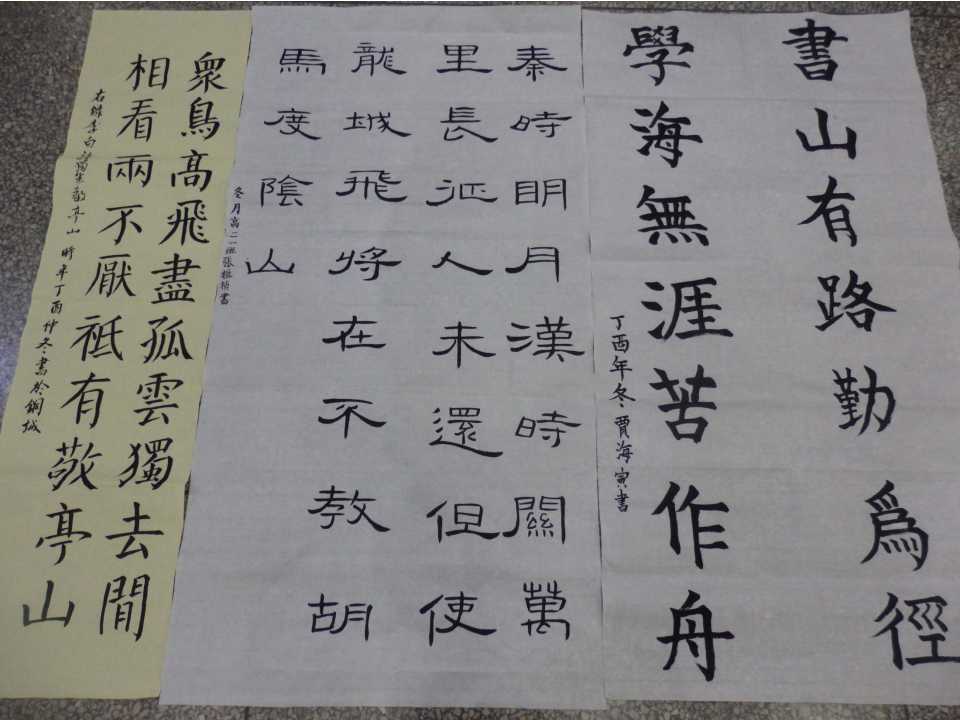 書山有路勤爲徑
學海無涯苦作舟
丁酉年冬賈海寅書
秦時明月漢時關萬
里長征人未還但使
龍城飛將在不教胡
馬度陰山
冬月高二一班張書
眾鳥高飛盡孤雲獨去閒
相看兩不厭祗有敬亭山
右錄李白獨坐敬亭山 時年丁酉仲冬書於銅城